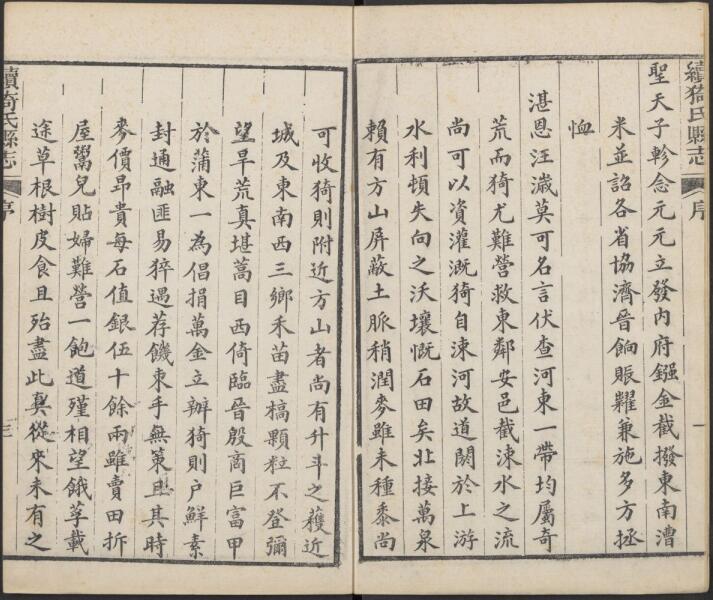 續猗氏縣志
序
一
聖天子軫念元元立發內府鏹金截撥東南漕
米並詔各省協濟晉餉賑糶兼施多方拯
恤
湛恩汪濊莫可名言伏查河東一帶均屬奇
荒而猗尤難營救東鄰安邑截涑水之流
尚可以資灌溉猗自涑河故道閼於上游
水利頓失向之沃壤慨石田矣北接萬泉
賴有方山屏蔽土脈稍潤麥雖未種黍尚
可收猗則附近方山者尚有升斗之蓛近
城及東南西三鄉禾苗盡槁顆粒不登彌
望旱荒真堪蒿目西倚臨晉殷商巨富甲
於蒲東一為倡捐萬金立辦猗則戶鮮素
封通融匪易猝遇荐饑束手無策且其時
麥價昂貴每石值銀伍十餘兩雖賣田拆
屋鬻兒貼婦難營一飽道殣相望餓莩載
途草根樹皮食且殆盡此真從來未有之
續猗氏縣志
序
三